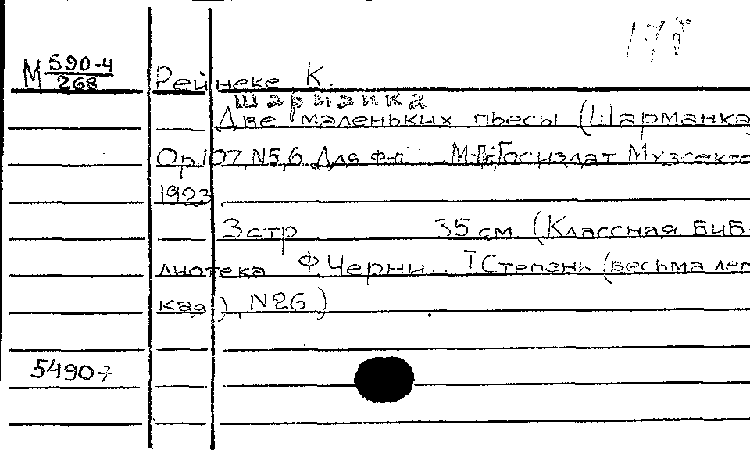 178
М 590-4
268
Рейнеке К.
Шарманка
Две маленьких пьесы (Шарманка
Ор 107, N5,6. Для ф-п М.П; Госиздат Музсекто
1923
3 стр 35 см (Классная биб-
лиотека Ф. Черни. I Степень (весьма лег
кая), N26)
5490-7